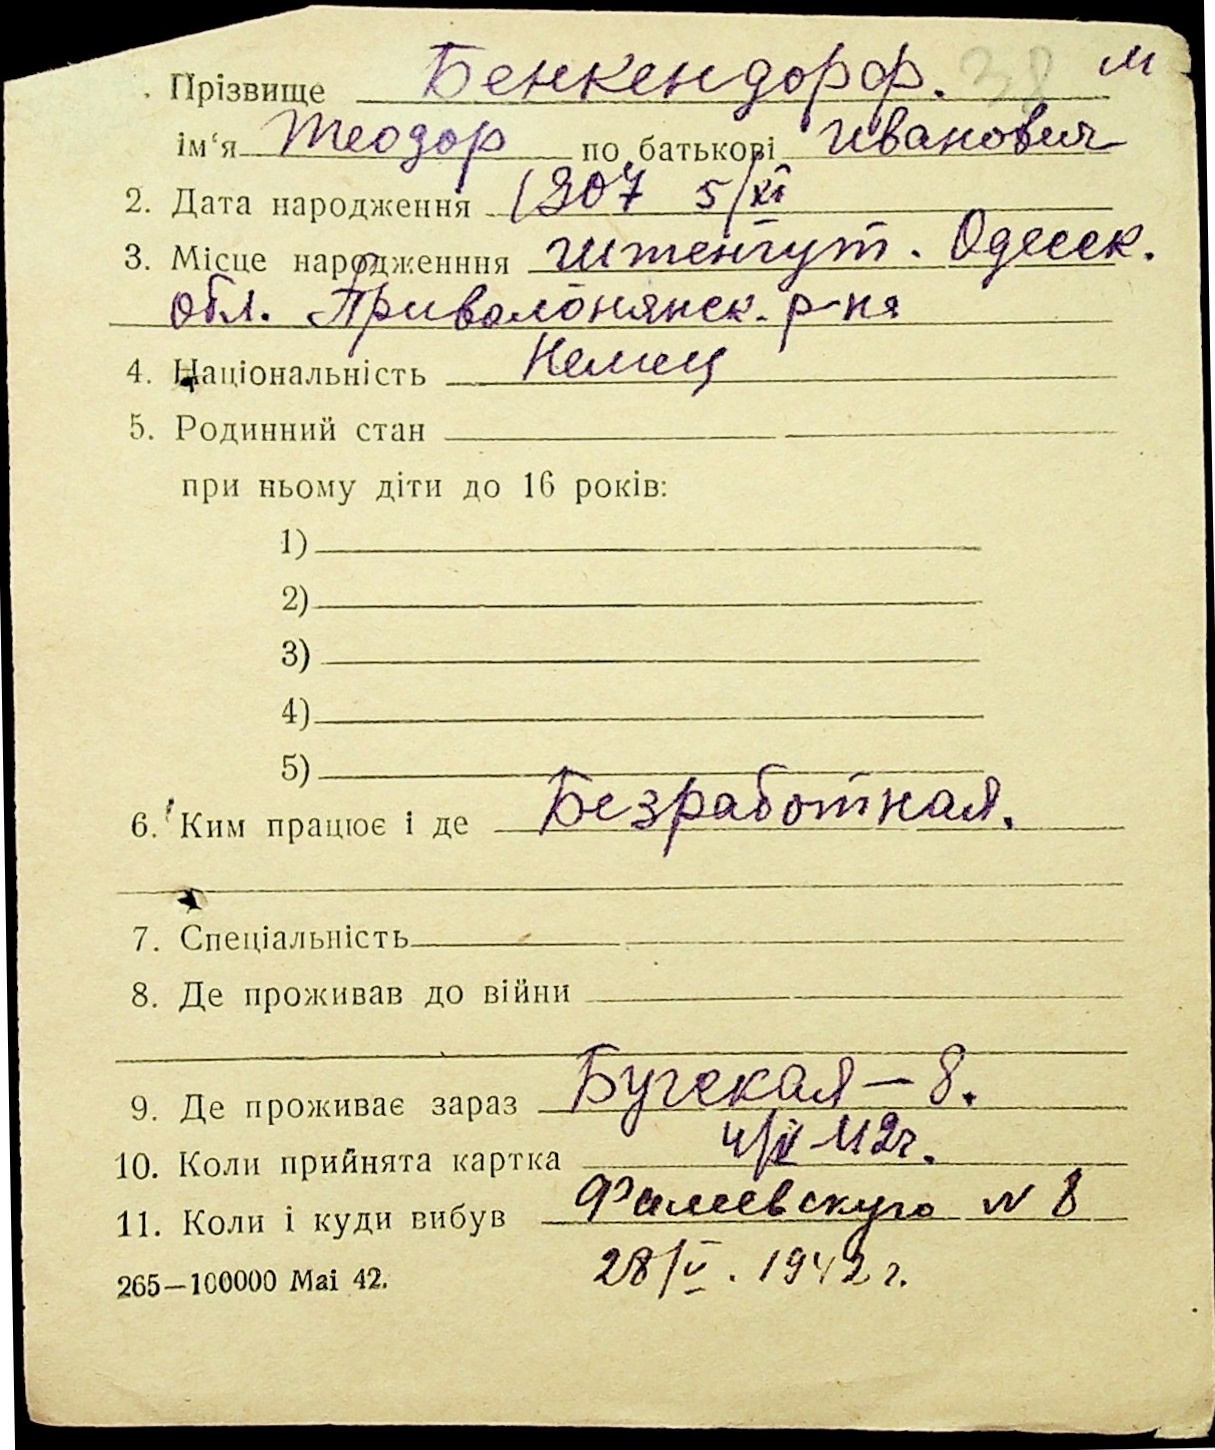 Прізвище Бенкендорф. 38 м
ім‘я Теодор по батькові Иванович
2. Дата народження 1907 5/XI
3. Місце народженння Штенгут. Одесск.
обл. Приволонянск. р-на
4. Національність Немец
5. Родинний стан
при ньому діти до 16 років:
1)
2)
3)
4)
5)
6. Ким працює і де Безработная.
7. Спеціальність
8. Де проживав до війни
9. Де проживає зараз Бугская — 8.
10. Коли прийнята картка 42г.
11. Коли і куди вибув Фалеевскую № 8
265—100000 Mai 42. 28/V. 1942 г.